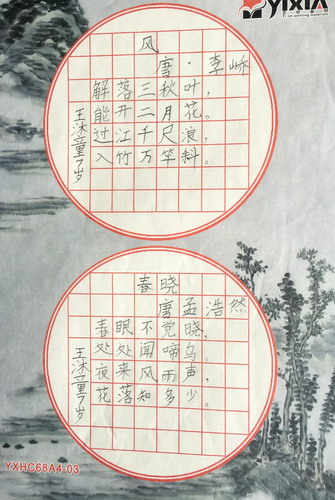 YIXIA
风
唐·李峤
解落三秋叶，
能开二月花。
过江千尺浪，
入竹万竿斜。
王沐童7岁
春晓
唐孟浩然
春眠不觉晓，
处处闻啼鸟。
夜来风雨声，
花落知多少。
王沐童7岁
YXHC68A4-03